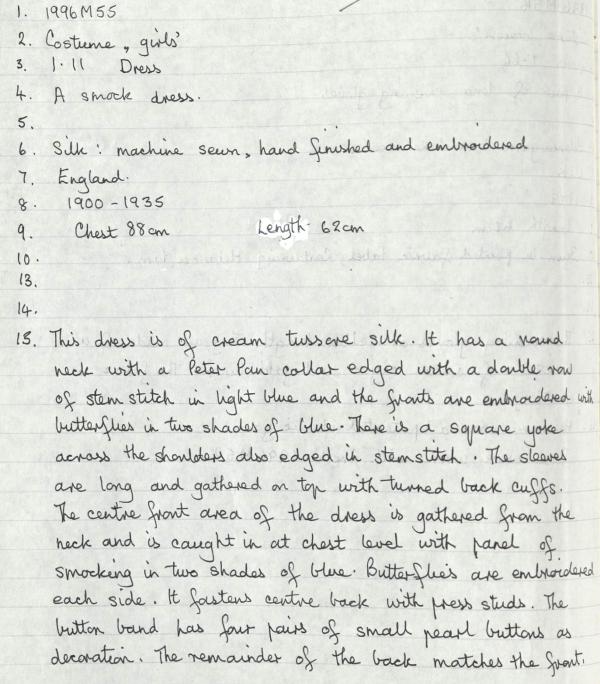 1. 1996M55
2. Costume, girls'
3. 1.11 Dress
4. A smock dress.
5.
6. Silk: machine sewn, hand finished and embroidered
7. England.
8. 1900-1935
9. Chest 88cm Length 62cm
10.
13.
14.
15. This dress is of cream tussore silk. It has a round
neck with a Peter Pan collar edged with a double row
of stem stitch in light blue and the fronts are embroidered with
butterflies in two shades of blue. There is a square yoke
across the shoulders also edged in stemstitch. The sleeves
are long and gathered on top with turned back cuffs.
The centre front area of the dress is gathered from the
neck and is caught in at chest level with panel of
smocking in two shades of blue. Butterflies are embroidered
each side. It fastens centre back with press studs. The
button band has four pairs of small pearl buttons as
decoration. The remainder of the back matches the front.